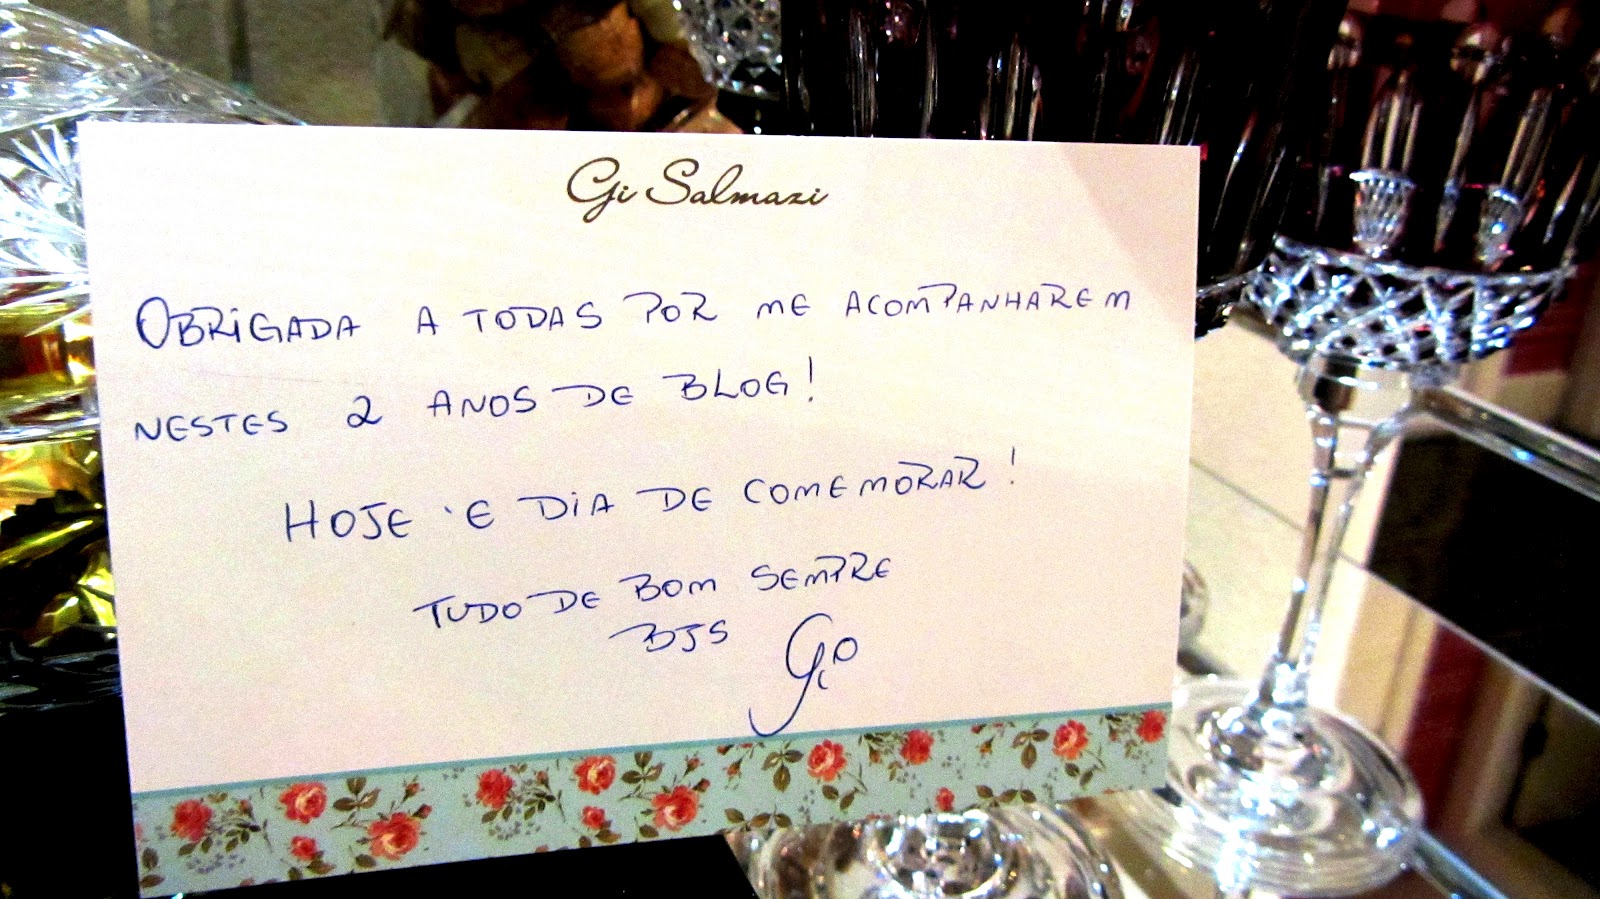 Gi Salmazi
OBRIGADA A TODAS POR ME ACOMPANHAREM
NESTES 2 ANOS DE BLOG!
HOJE É DIA DE COMEMORAR!
TUDO DE BOM SEMPRE
BJS Gi